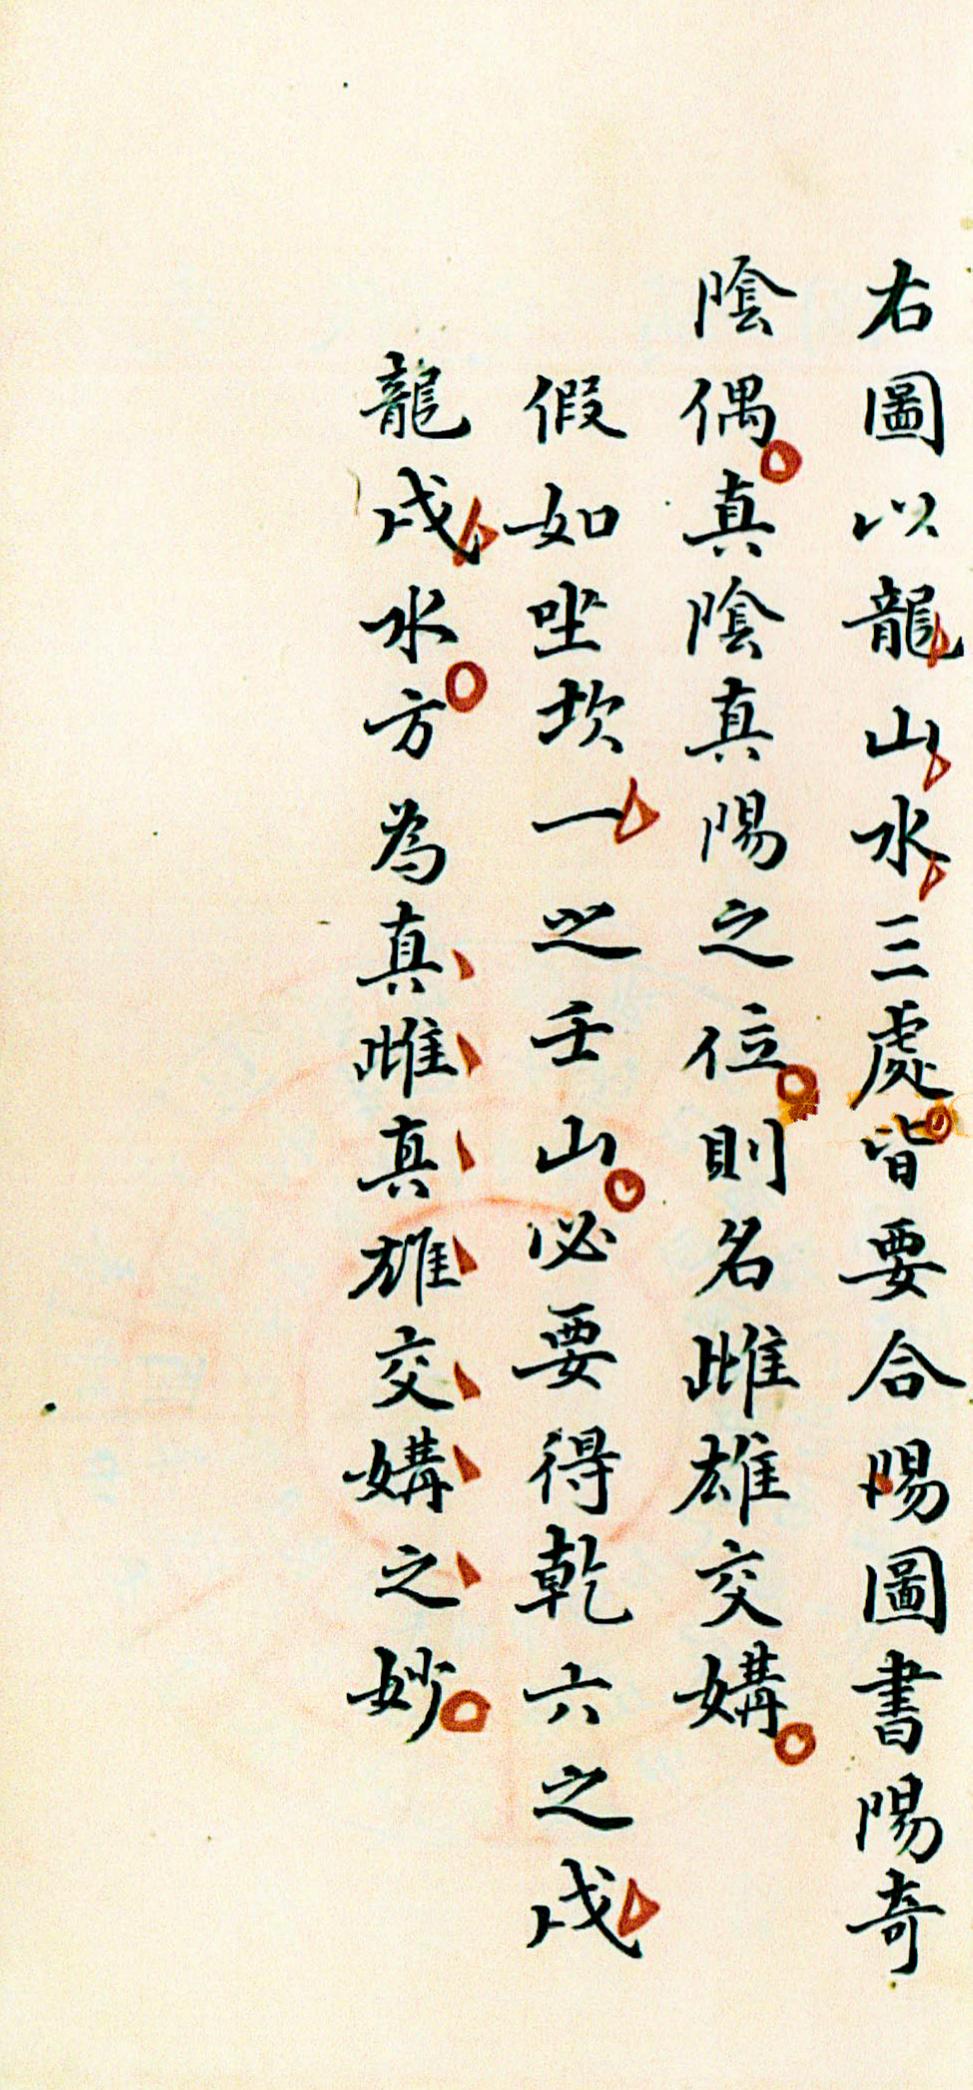 右圖以龍山水三處皆要合賜圖書陽奇
陰偶真陰真陽之位則名雌雄交媾
假如坐坎一之壬山必要得乾六之戌
龍戌水方為真雌真雄交媾之妙